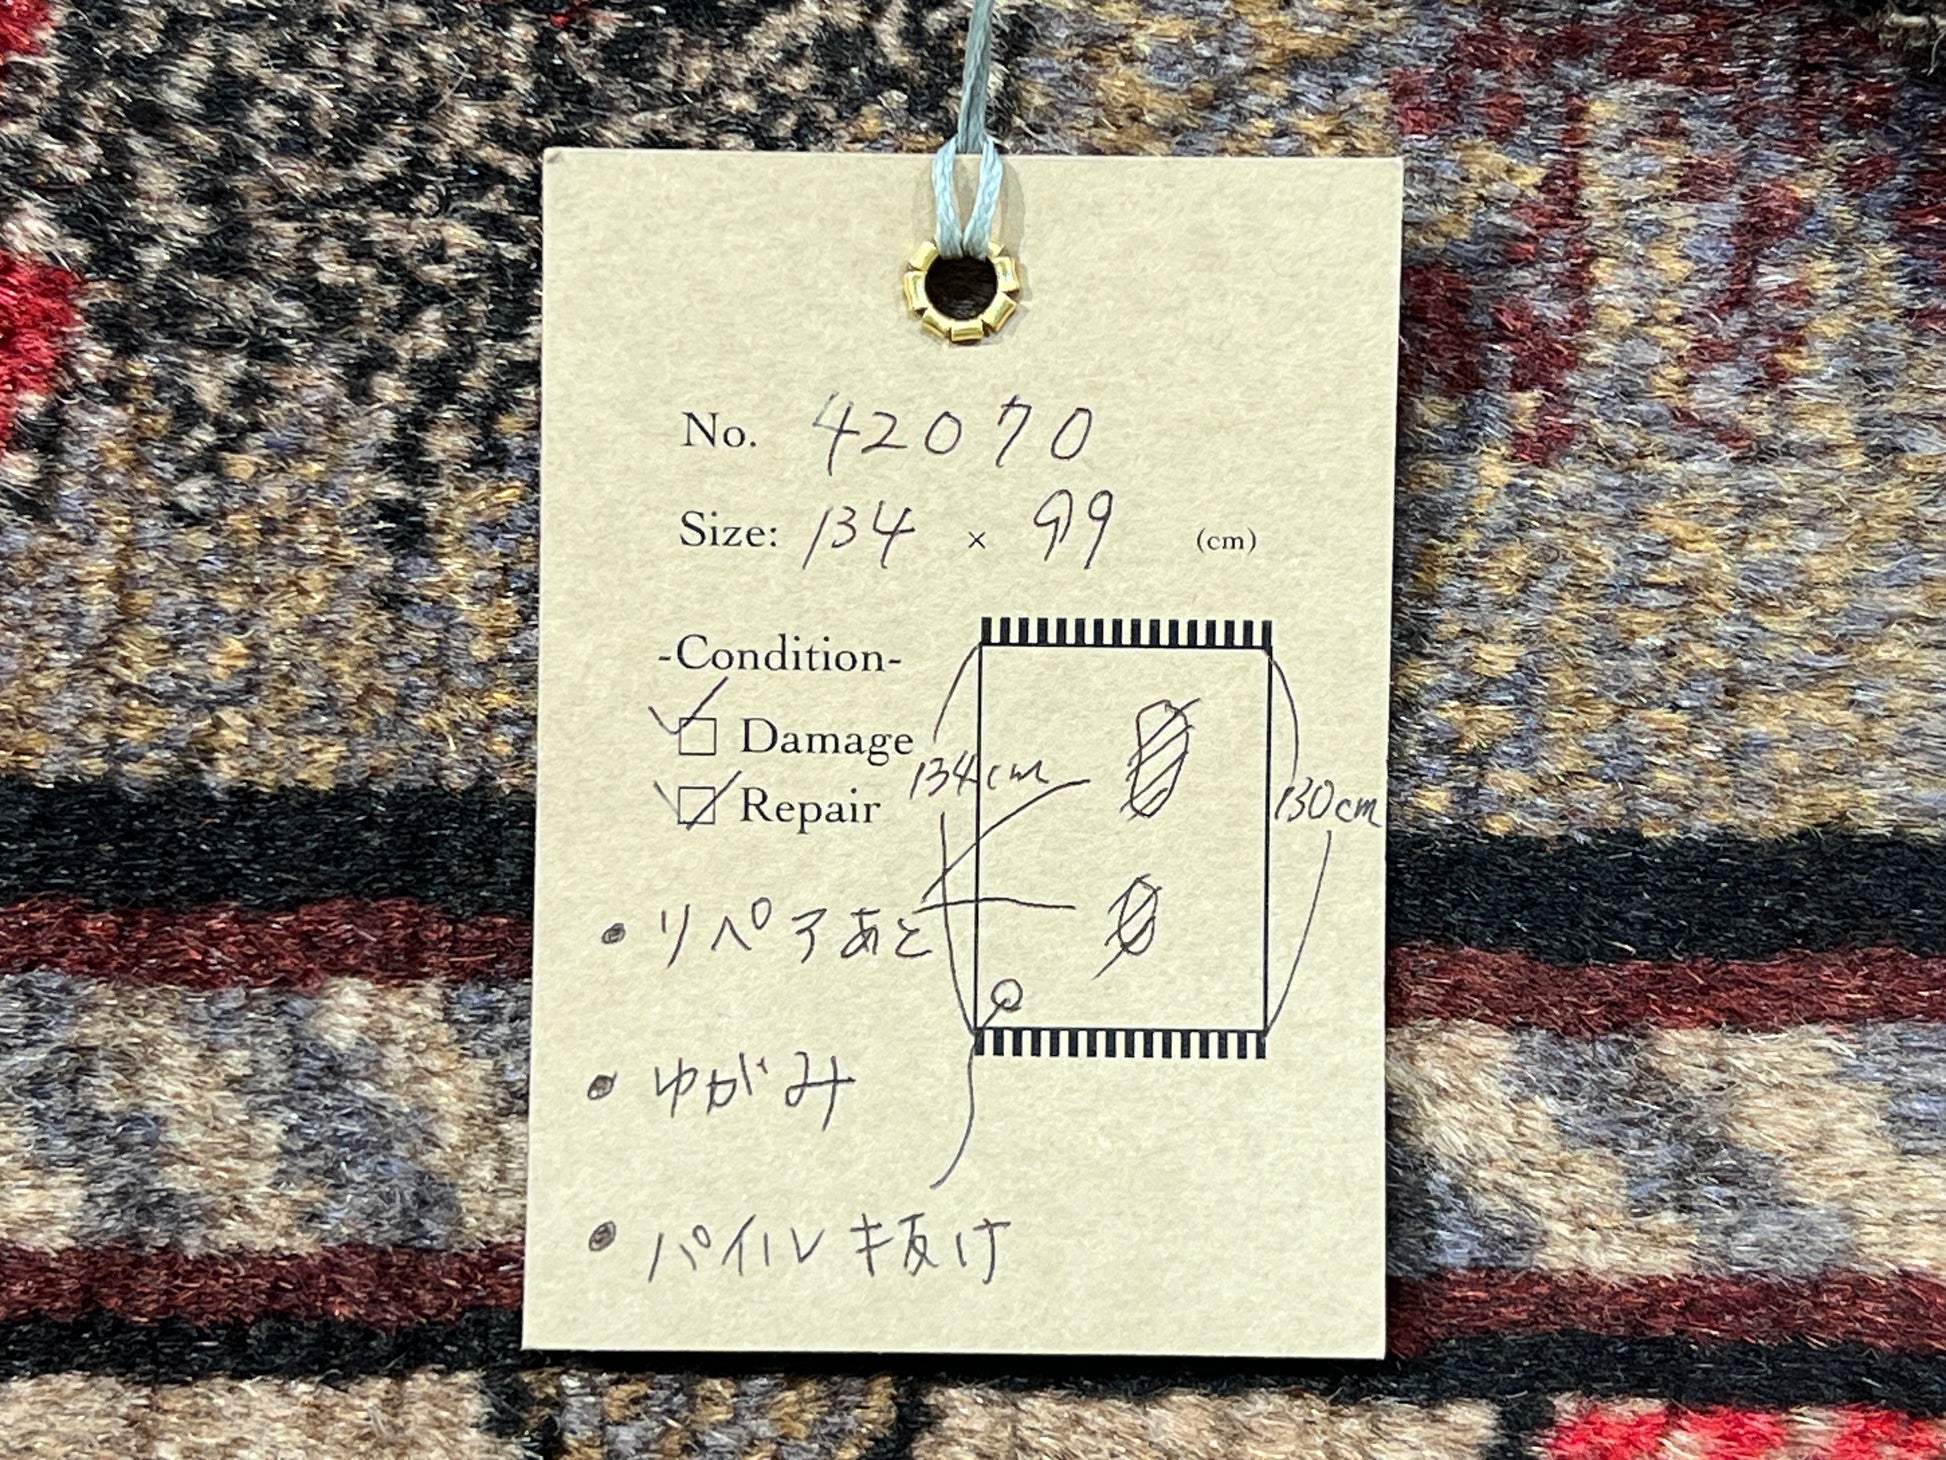 No. 42070
Size: 134 × 99 (cm)
-Condition-
Damage
Repair
134cm
130cm
• リペアあと
• ゆがみ
• パイルキ抜け